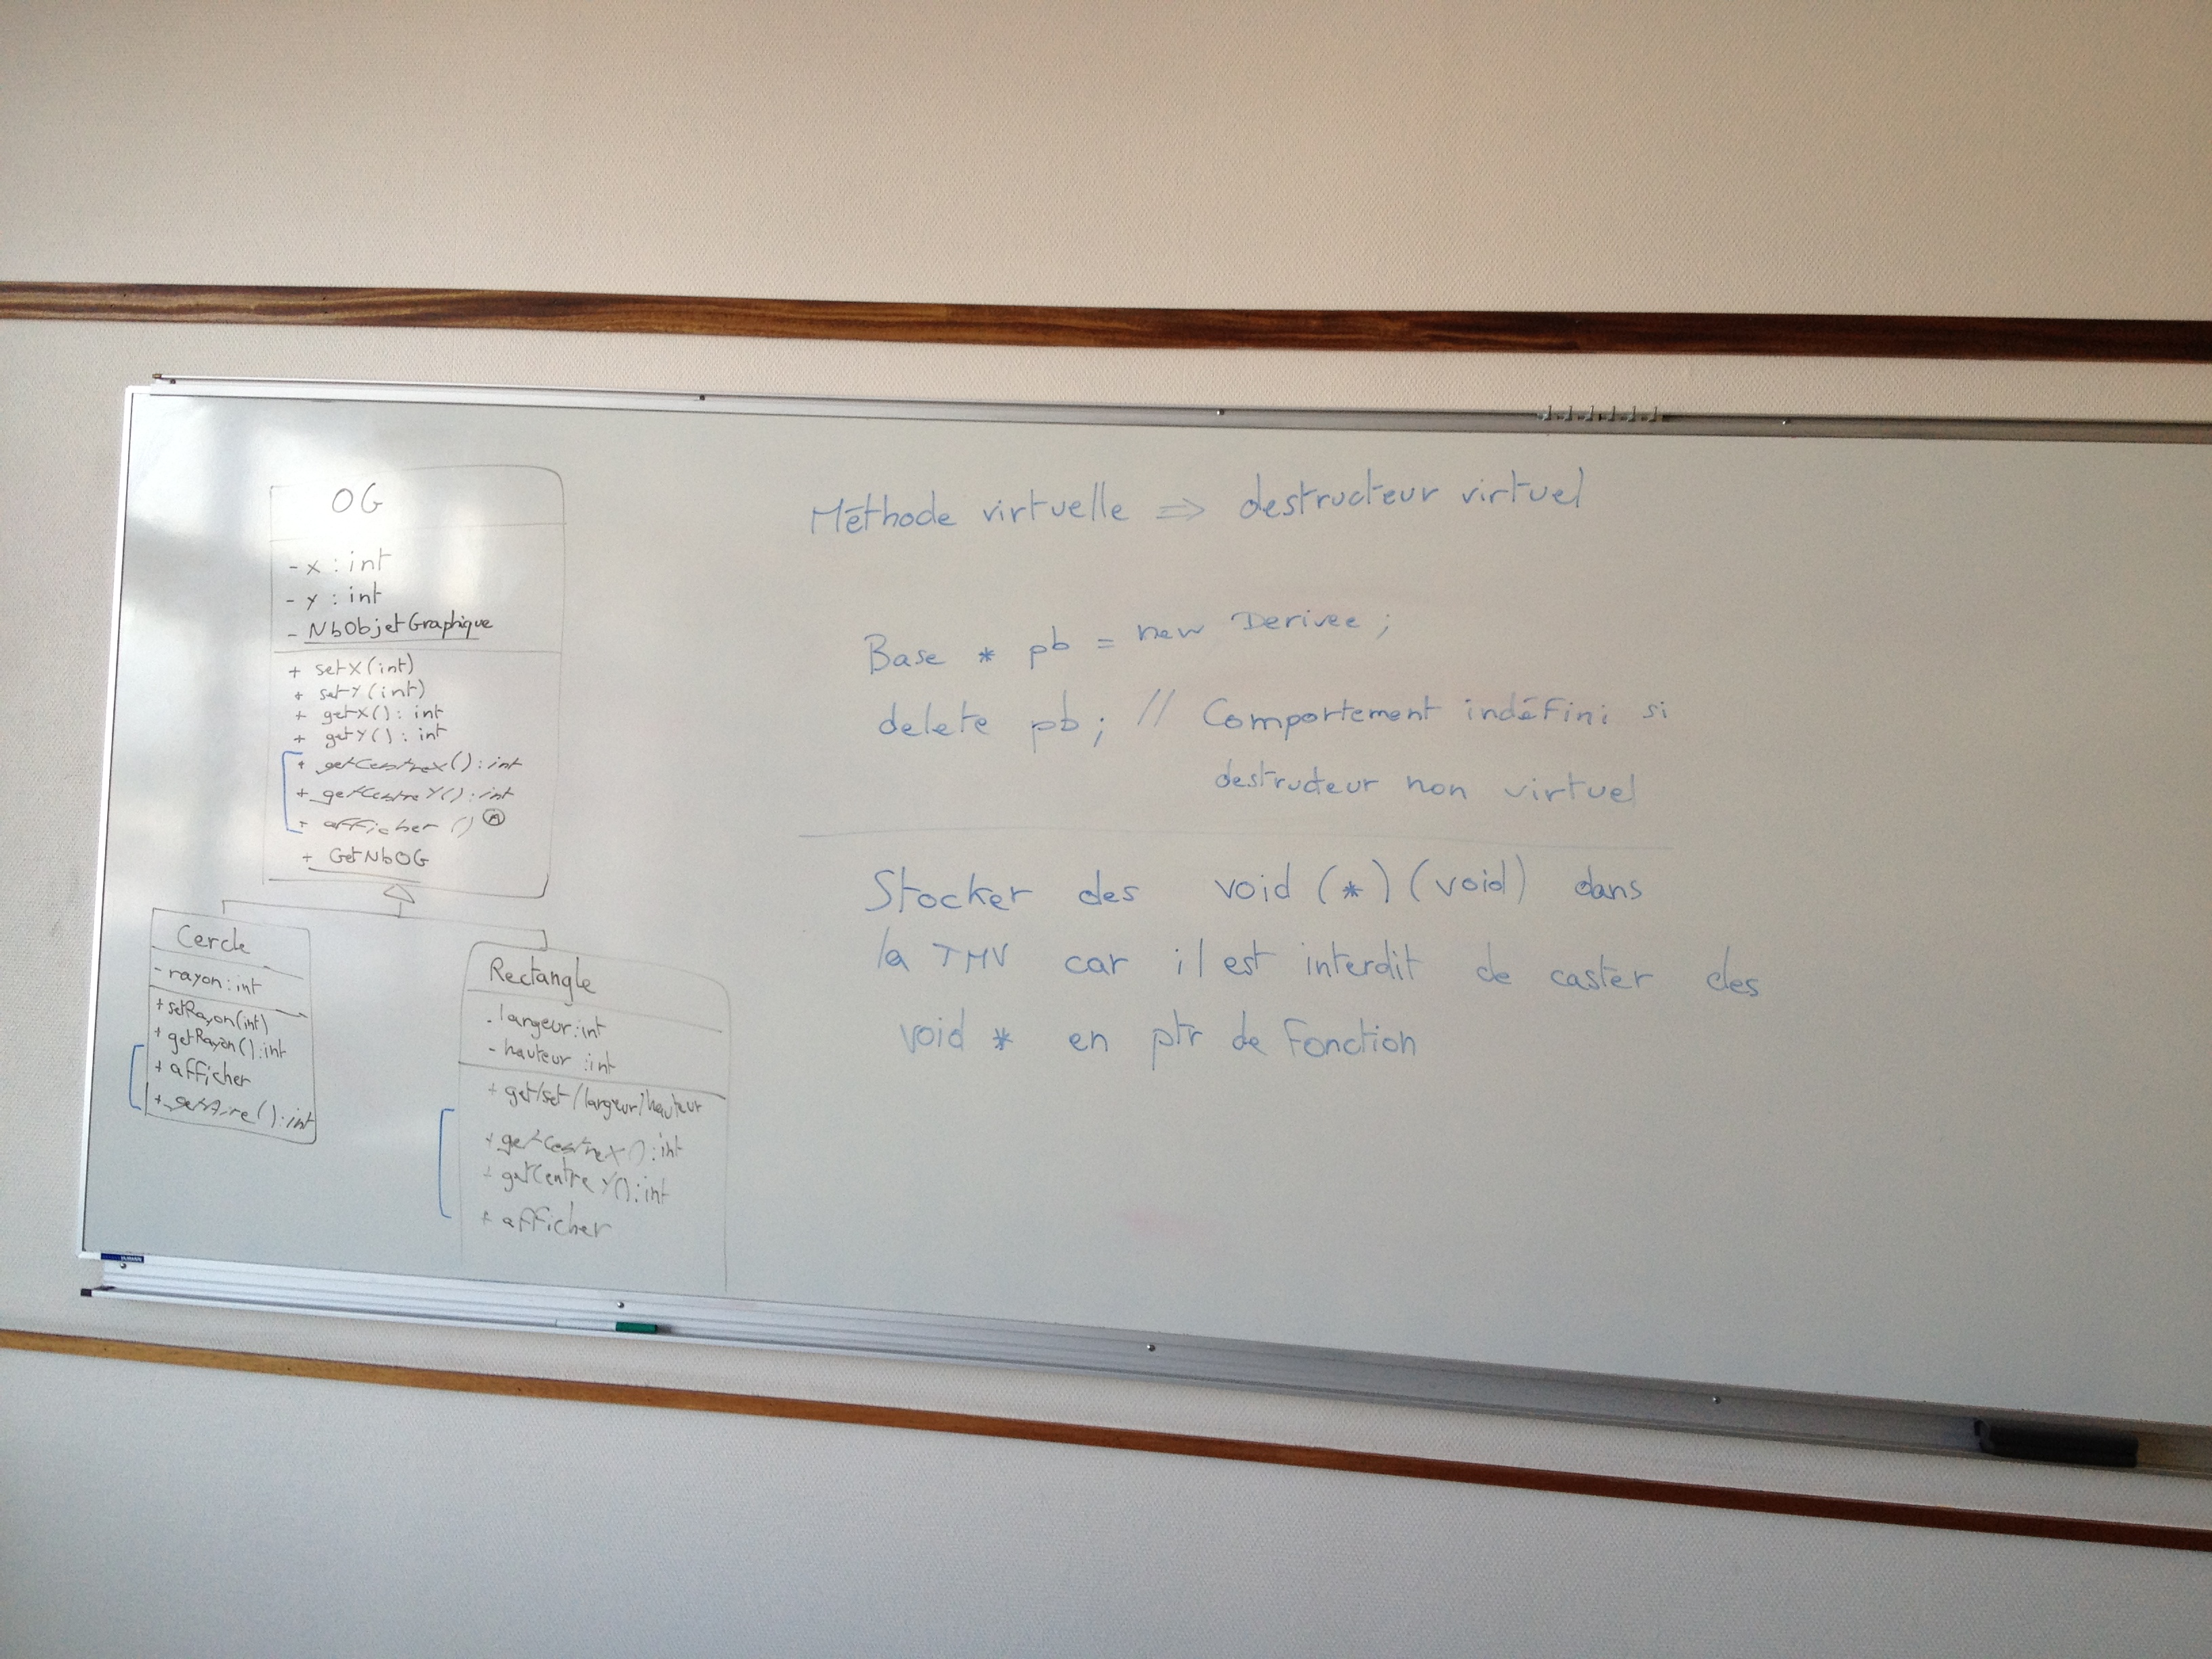 OG
- x : int
- y : int
- NbObjetGraphique
+ setX(int)
+ setY(int)
+ getX() : int
+ getY() : int
+ getCentreX() : int
+ getCentreY() : int
+ afficher ()
+ GetNbOG
Cercle
- rayon : int
+ setRayon(int)
+ getRayon() : int
+ afficher
+ getAire() : int
Rectangle
- largeur : int
- hauteur : int
+ get/set/largeur/hauteur
+ getCentreX() : int
+ getCentreY() : int
+ afficher
Méthode virtuelle ⇒ destructeur virtuel
Base * pb = new Derivee ;
delete pb ; // Comportement indéfini si
destructeur non virtuel
Stocker des void (*) (void) dans
la TMV car il est interdit de caster des
void * en ptr de fonction